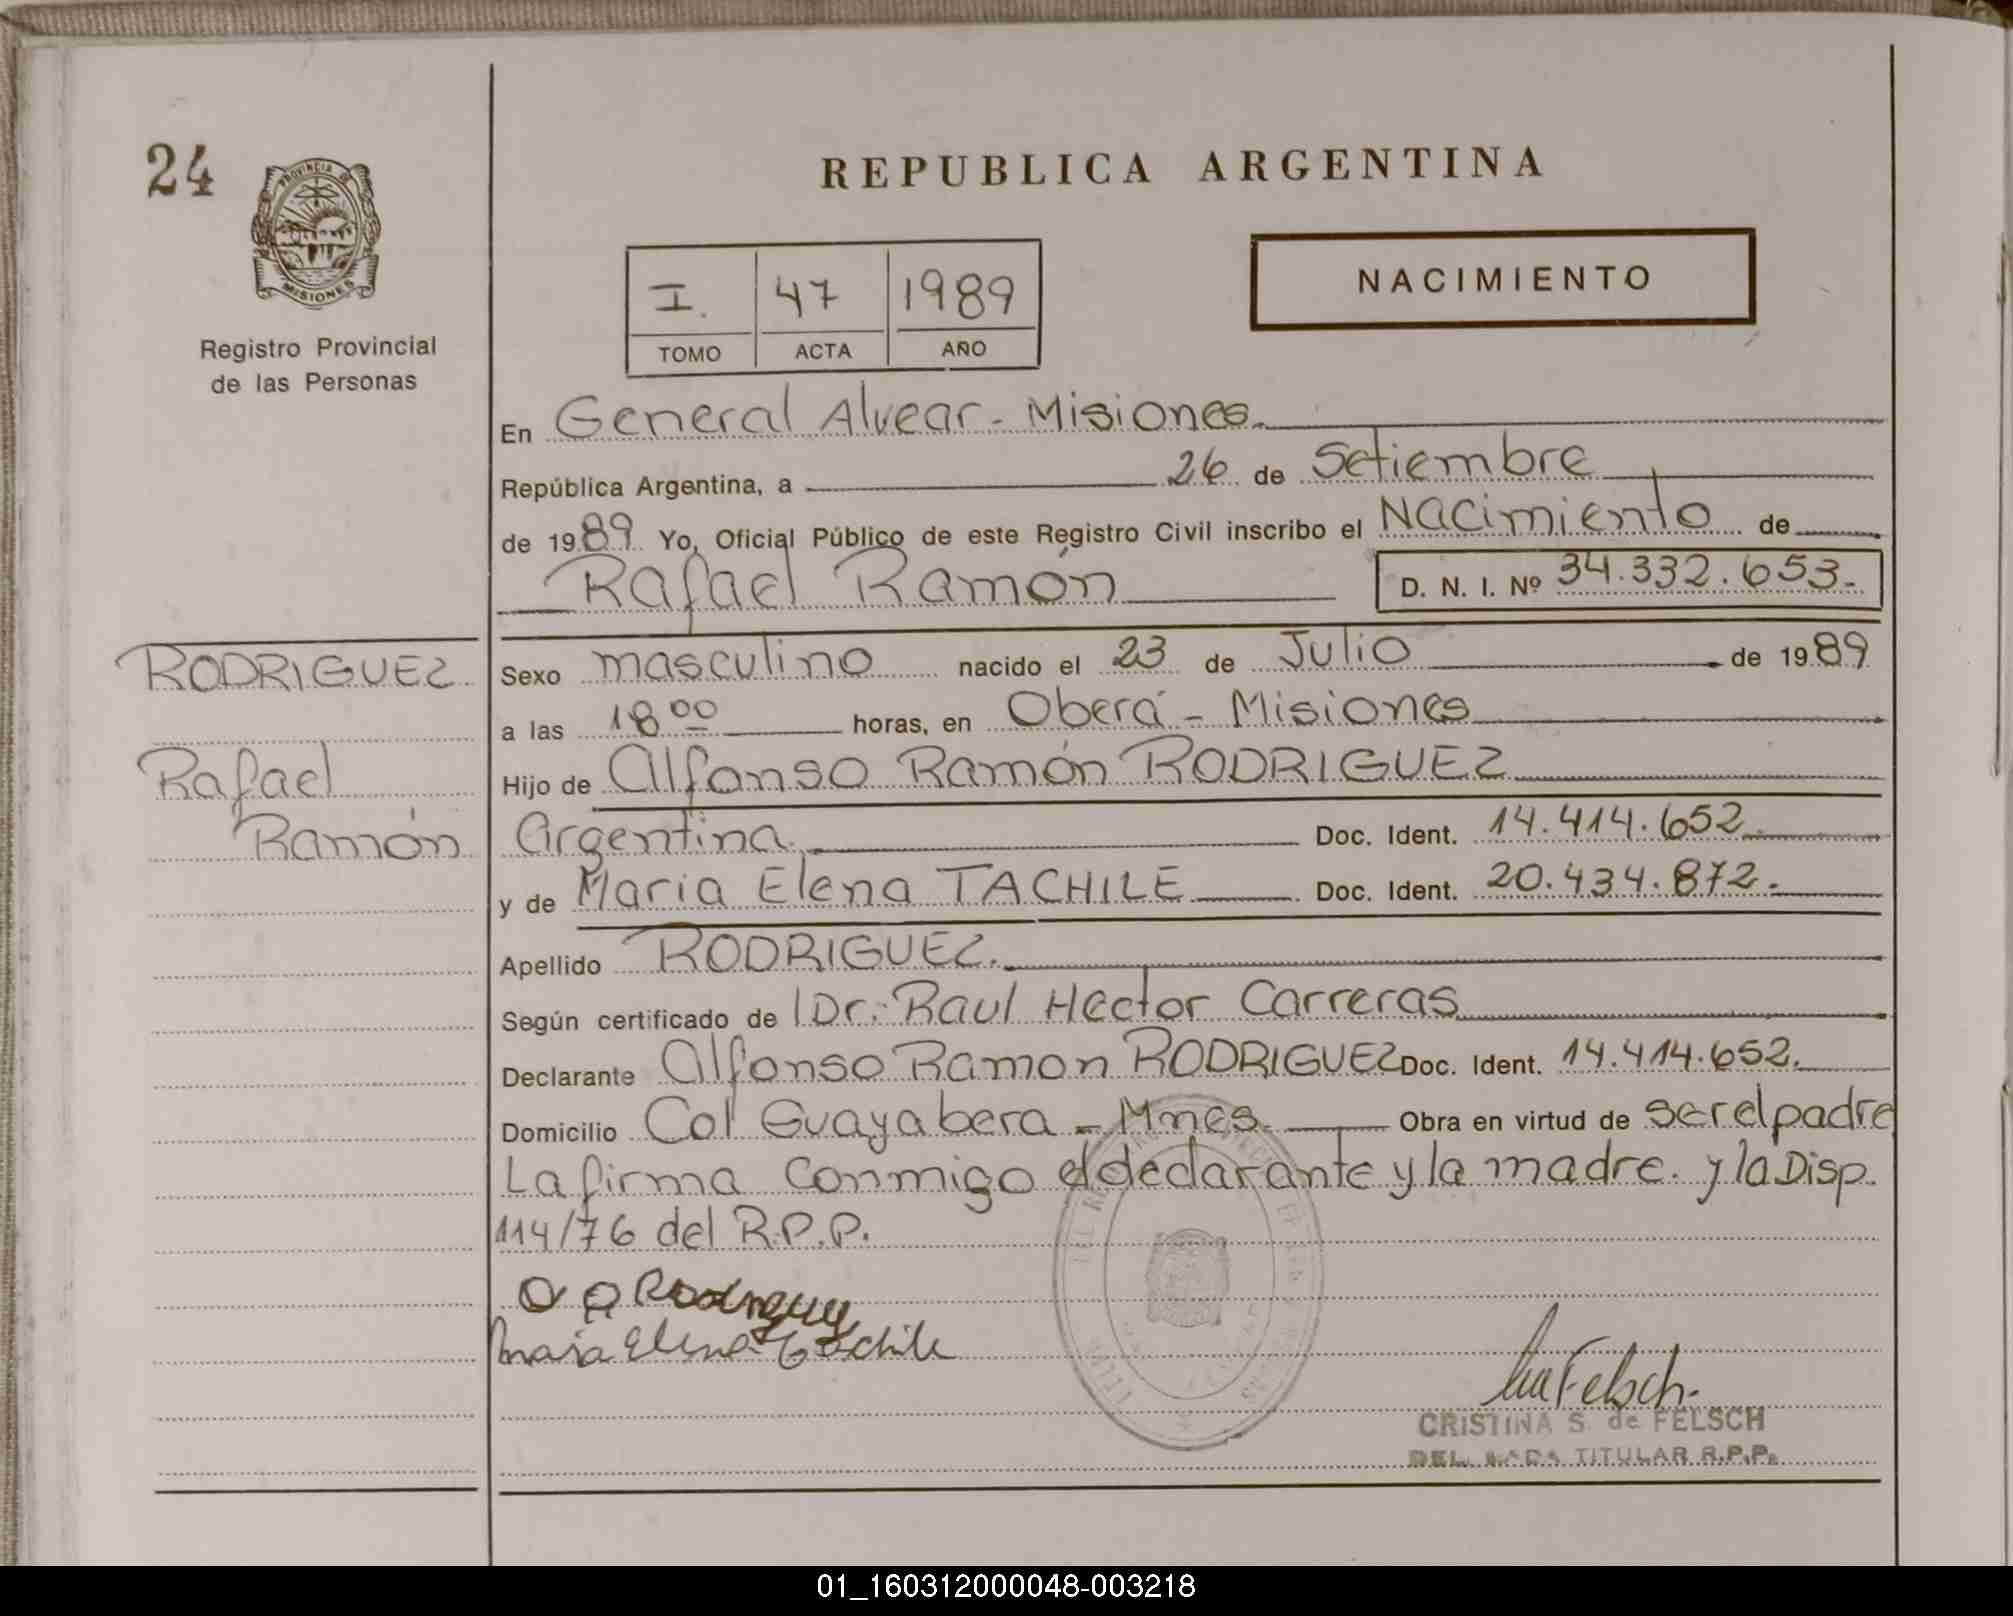 24
REPUBLICA ARGENTINA
PROVINCIA DE
MISIONES
NACIMIENTO
I. 47 1989
TOMO ACTA AÑO
Registro Provincial
de las Personas
En General Alvear - Misiones.
República Argentina, a 26 de Setiembre
de 1989 Yo, Oficial Público de este Registro Civil inscribo el Nacimiento de
Rafael Ramón D. N. I. Nº 34.332.653.-
RODRIGUEZ
Rafael
Ramón
Sexo masculino nacido el 23 de Julio de 1989
a las 18 00 horas, en Oberá - Misiones
Hijo de Alfonso Ramón RODRIGUEZ
Argentina. Doc. Ident. 14.414.652
y de Maria Elena TACHILE Doc. Ident. 20.434.872.-
Apellido RODRIGUEZ.
Según certificado de Dr. Raul Hector Carreras
Declarante Alfonso Ramon RODRIGUEZ Doc. Ident. 14.414.652.
Domicilio Col Guayabera - Mnes. Obra en virtud de ser el padre
La firma conmigo el declarante y la madre. y la Disp.
114/76 del R.P.P.
Rodriguez
Maria Elena Tachile
Felsch.
CRISTINA S. de FELSCH
TITULAR R.P.P.
01_160312000048-003218